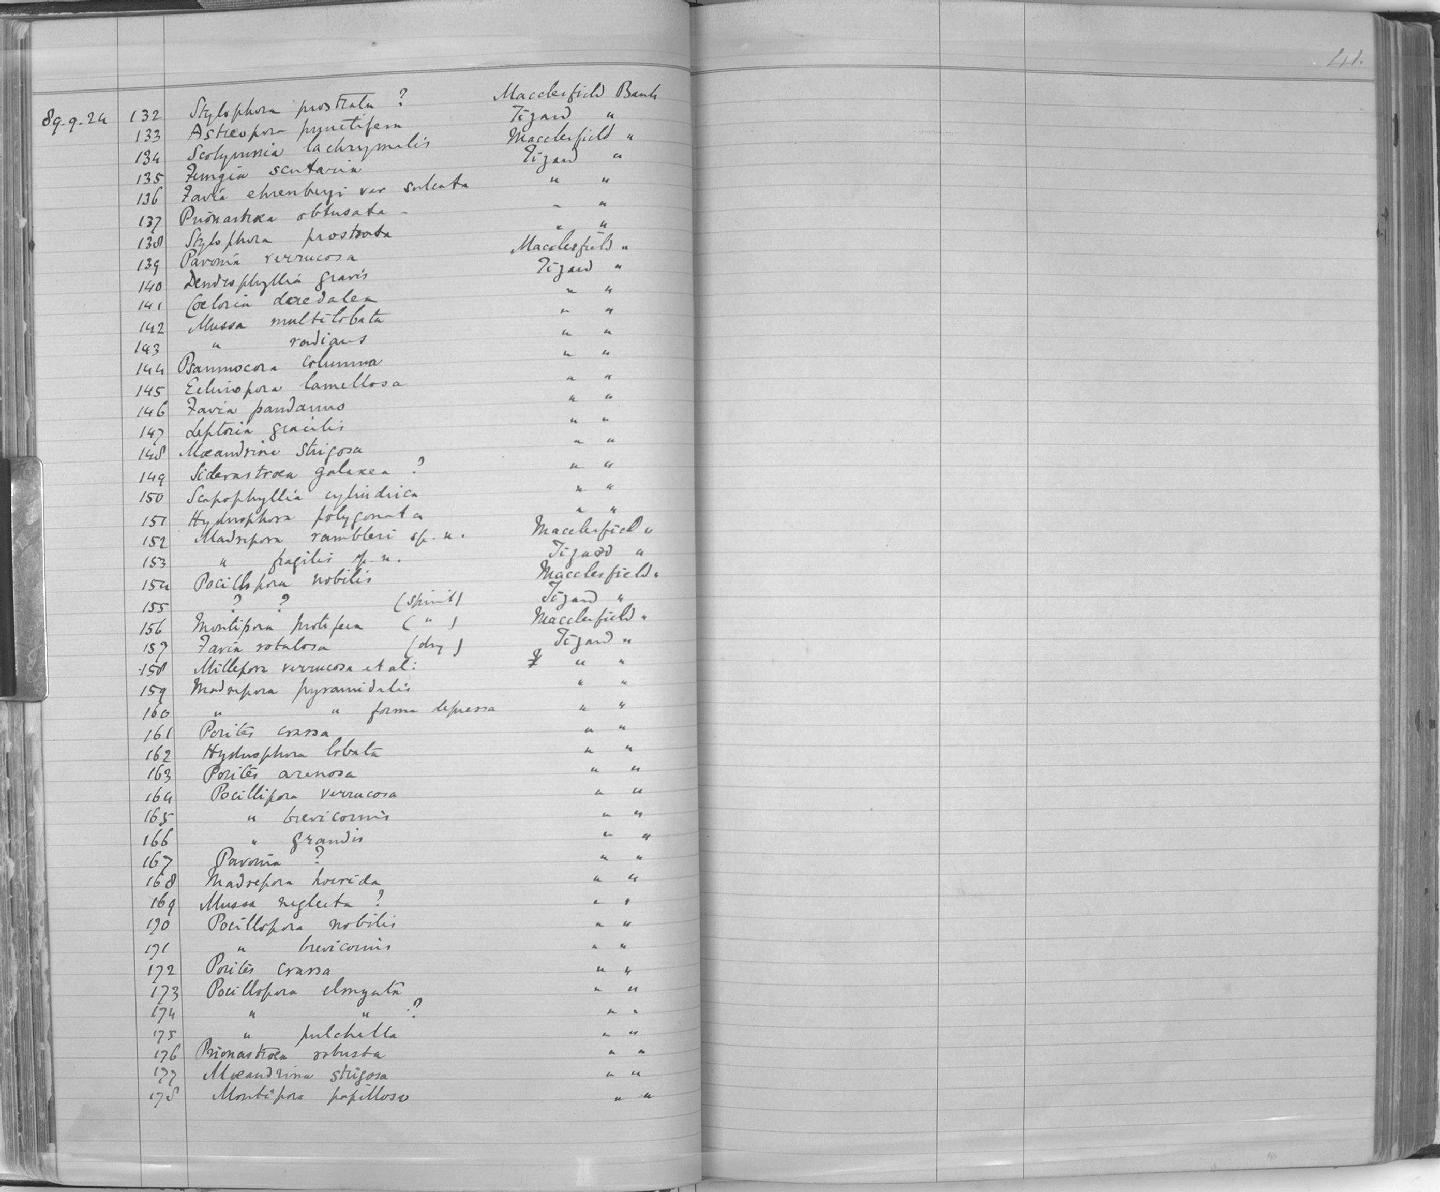 41.
89.9.24 132 Stylophora prostrata ? Macclesfield Bank
133 Astreopora punctifera Tizard "
134 Scolymnia lachrymalis Macclesfield "
135 Fungia scutaria Tizard "
136 Favia ehrenbergi var sulcata " "
137 Prionastræa obtusata - " "
138 Stylophora prostrata " "
139 Pavonia verrucosa Macclesfield "
140 Dendrophyllia gravis Tizard "
141 Cœloria dædalea " "
142 Mussa multilobata " "
143 " radians " "
144 Psammocora columna " "
145 Echinopora lamellosa " "
146 Favia pandanus " "
147 Leptoria gracilis " "
148 Mæandrina strigosa " "
149 Siderastræa galaxea ? " "
150 Scapophyllia cylindrica " "
151 Hydnophora polygonata " "
152 Madrepora rambleri sp. n. Macclesfield "
153 " fragilis sp. n. Tizard "
154 Pocillopora nobilis Macclesfield "
155 ? ? (spirit) Tizard "
156 Montipora (") Macclesfield "
157 Favia rotulosa (dry) Tizard "
158 Millepora verrucosa et al: " "
159 Madrepora pyramidalis " "
160 " " forma depressa " "
161 Porites crassa " "
162 Hydnophora lobata " "
163 Porites arenosa " "
164 Pocillipora verrucosa " "
165 " brevicornis " "
166 " grandis " "
167 Pavonia ? " "
168 Madrepora horrida " "
169 Mussa neglecta ? " "
170 Pocillopora nobilis " "
171 " brevicornis " "
172 Porites crassa " "
173 Pocillopora elongata " "
174 " " ? " "
175 " pulchella " "
176 Prionastræa robusta " "
177 Mæandrina strigosa " "
178 Montipora papillosa " "